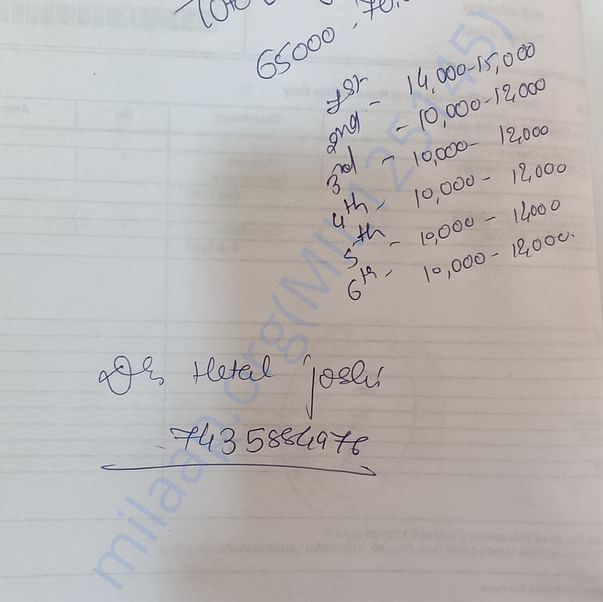 65000 - 70,
1st - 14,000-15,000
2nd - 10,000-12,000
3rd - 10,000- 12,000
4th - 10,000 - 12,000
5th - 10,000 - 12,000
6th - 10,000 - 12,000.
Dr. Hetal joshi
7435884976
milaan.org(MIL125145)